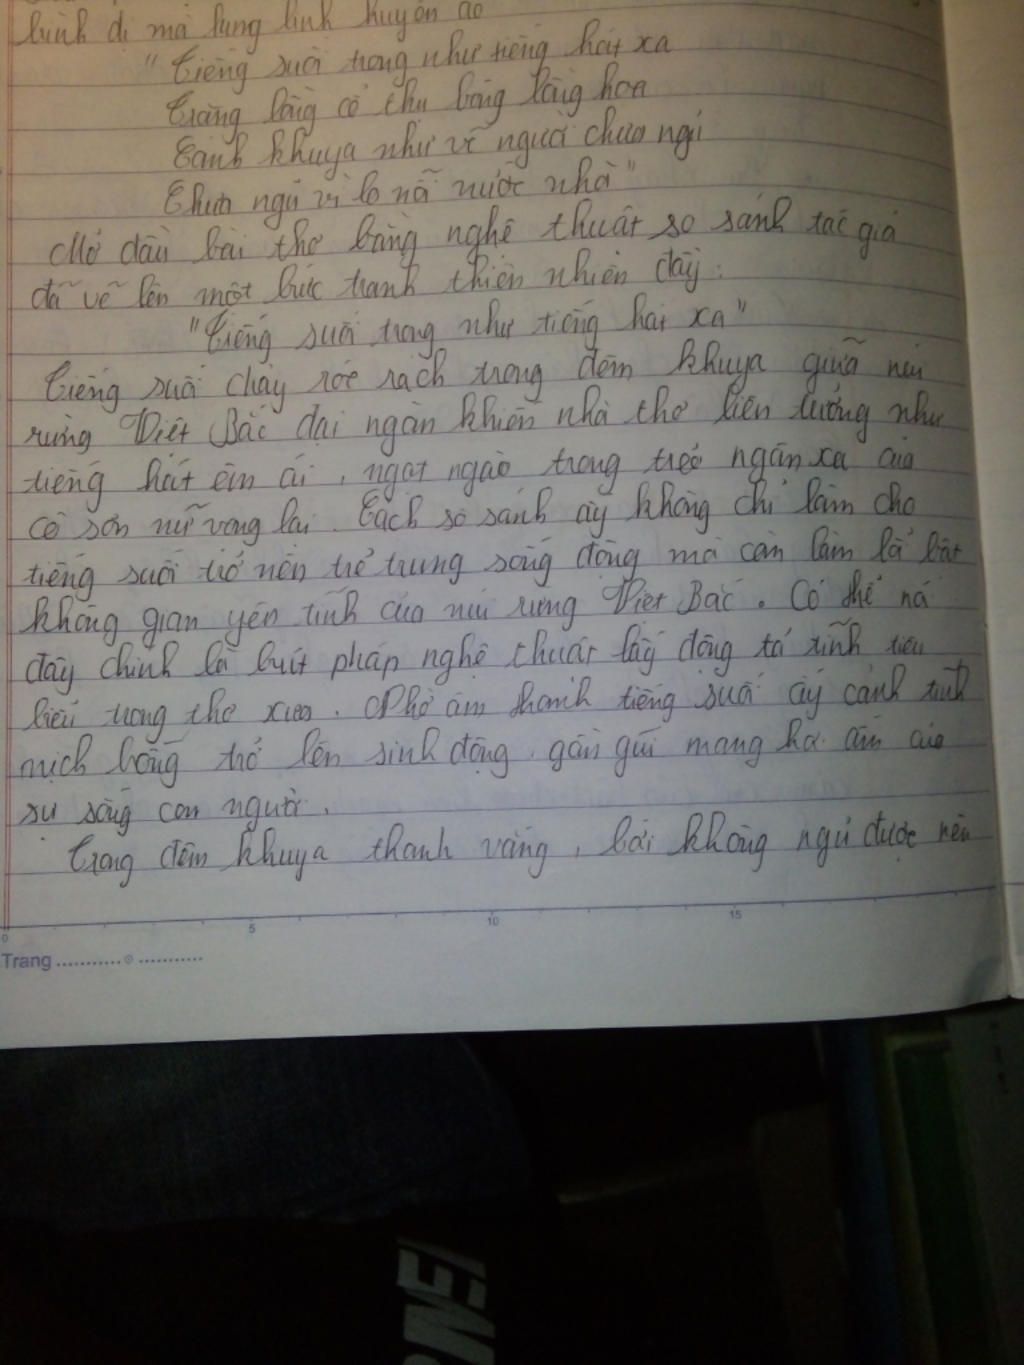 bình dị mà lung linh huyền ảo
"Tiếng suối trong như tiếng hát xa
Trăng lồng cổ thụ bóng lồng hoa
Cảnh khuya như vẽ người chưa ngủ
Chưa ngủ vì lo nỗi nước nhà"
Mở đầu bài thơ bằng nghệ thuật so sánh tác giả
đã vẽ lên một bức tranh thiên nhiên đầy:
"Tiếng suối trong như tiếng hát xa"
Tiếng suối chảy róc rách trong đêm khuya giữa núi
rừng Việt Bắc đại ngàn khiến nhà thơ liên tưởng như
tiếng hát êm ái, ngọt ngào trong trẻo ngân xa của
cô sơn nữ vọng lại. Cách so sánh ấy không chỉ làm cho
tiếng suối trở nên trẻ trung sống động mà còn làm nổi bật
không gian yên tĩnh của núi rừng Việt Bắc. Có thể nói
đây chính là bút pháp nghệ thuật lấy động tả tĩnh tiêu
biểu trong thơ xưa. Nhờ âm thanh tiếng suối ấy cảnh tĩnh
mịch bỗng trở lên sinh động, gần gũi mang hơi ấm của
sự sống con người.
Trong đêm khuya thanh vắng, bởi không ngủ được nên
0 5 10 15
Trang